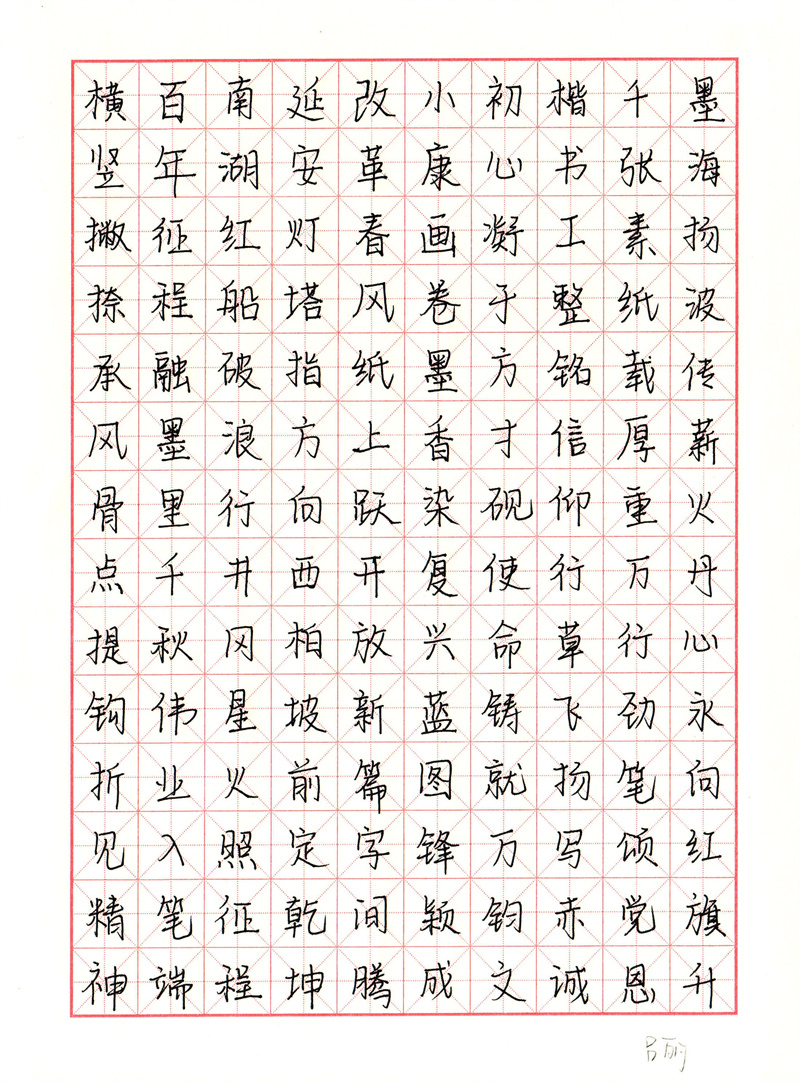 横竖撇捺承风骨点提钩折见精神
百年征程融墨里千秋伟业入笔端
南湖红船破浪行井冈星火照征程
延安灯塔指方向西柏坡前定乾坤
改革春风纸上跃开放新篇字间腾
小康画卷墨香染复兴蓝图锋颖成
初心凝于方寸砚使命铸就万钧文
楷书工整铭信仰行草飞扬写赤诚
千张素纸载厚重万行劲笔颂党恩
墨海扬波传薪火丹心永向红旗升
吕丽